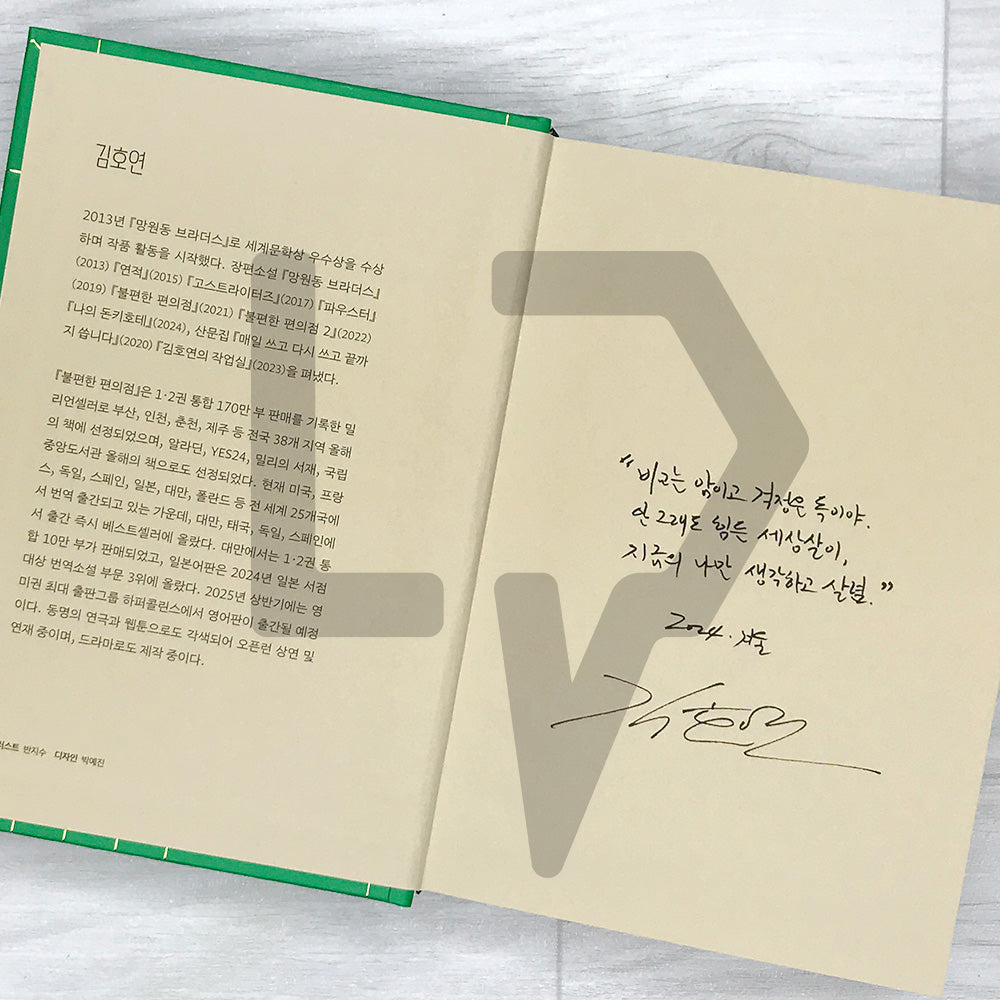 김호연
2013년 『망원동 브라더스』로 세계문학상 우수상을 수상
하며 작품 활동을 시작했다. 장편소설 『망원동 브라더스』
(2013) 『연적』(2015) 『고스트라이터즈』(2017) 『파우스터』
(2019) 『불편한 편의점』(2021) 『불편한 편의점 2』(2022)
『나의 돈키호테』(2024), 산문집 『매일 쓰고 다시 쓰고 끝까
지 씁니다』(2020) 『김호연의 작업실』(2023)을 펴냈다.
『불편한 편의점』은 1·2권 통합 170만 부 판매를 기록한 밀
리언셀러로 부산, 인천, 춘천, 제주 등 전국 38개 지역 올해
의 책에 선정되었으며, 알라딘, YES24, 밀리의 서재, 국립
중앙도서관 올해의 책으로도 선정되었다. 현재 미국, 프랑
스, 독일, 스페인, 일본, 대만, 폴란드 등 전 세계 25개국에
서 번역 출간되고 있는 가운데, 대만, 태국, 독일, 스페인에
서 출간 즉시 베스트셀러에 올랐다. 대만에서는 1·2권 통
합 10만 부가 판매되었고, 일본어판은 2024년 일본 서점
대상 번역소설 부문 3위에 올랐다. 2025년 상반기에는 영
미권 최대 출판그룹 하퍼콜린스에서 영어판이 출간될 예정
이다. 동명의 연극과 웹툰으로도 각색되어 오픈런 상연 및
연재 중이며, 드라마로도 제작 중이다.
러스트 반지수 디자인 박예진
“비교는 암이고 걱정은 독이야.
안 그래도 힘든 세상살이,
지금의 나만 생각하고 살렴.”
2024. 겨울
김호연
LD